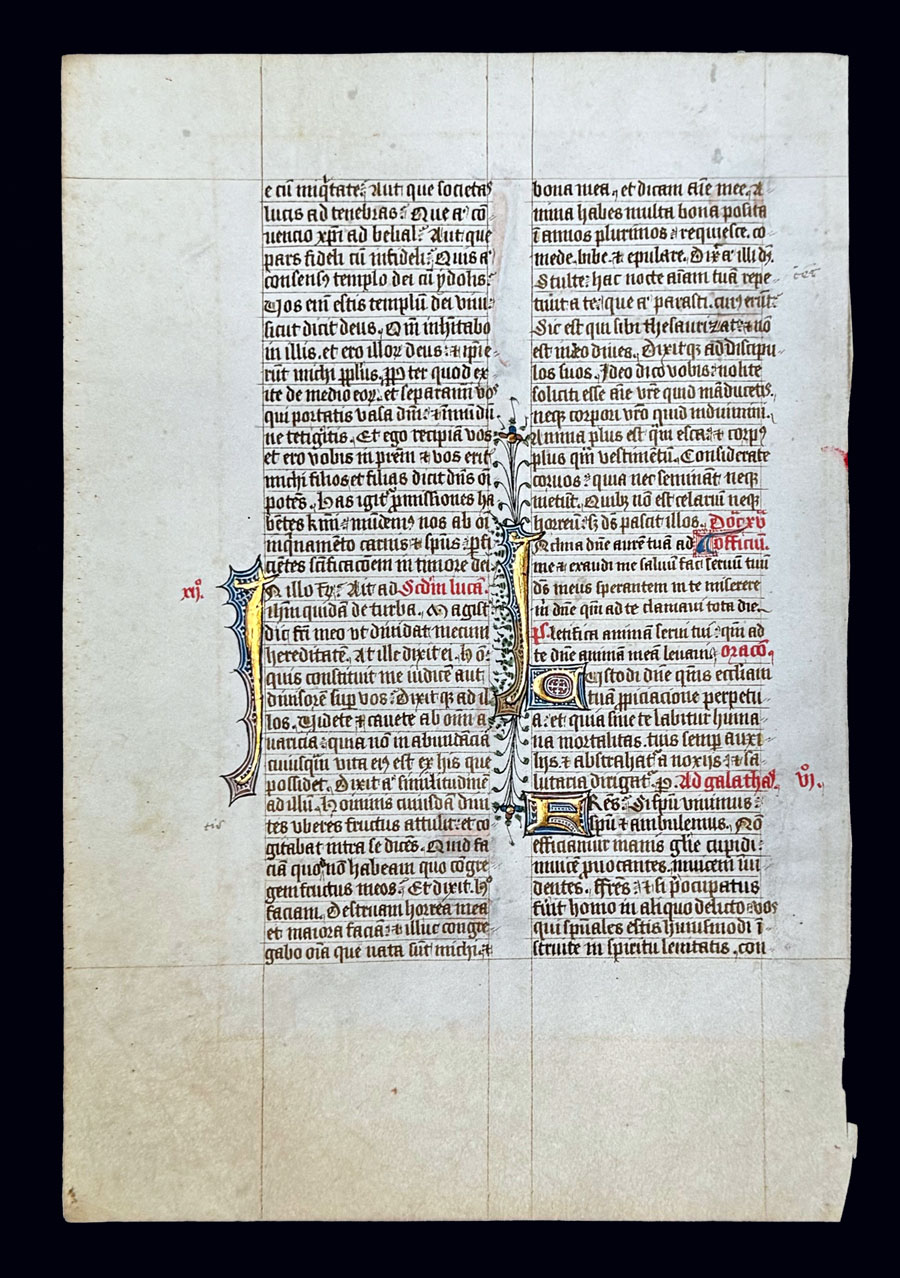 e cū iniq̇tate? Aut que societas
lucis ad tenebras? Que aͣ cō
uencio xp̄i ad belial? Aut que
pars fideli cū infideli? Quis aͣ
consensꝰ templo dei cū ydolis?
Vos enī estis templū dei viui
sicut dicit deus. Qm̄ inhītabo
in illis. et ero illoꝝ deus: ⁊ ip̄i e
rūt michi ppl̄us. Propter quod ex
ite de medio eoꝝ. et separamī vos
qui portatis vasa dn̄i: ⁊ inmūdū
ne tetigitis. Et ego recipiā vos
et ero vobis in prēm ⁊ vos erit
michi filios et filias dicit dn̄s oī
potēs. Has igit̉ pͦmissiones ha
bētes kīmi: mūdemꝰ nos ab oī
inquamēto carnis ⁊ sp̄us: ꝑfi
ciētes sc̄ificacōem in timore dei.
xijͦ.
In illo t̄p̄. Ait ad Scd̄m lucā.
ih̄m quidā de turba. Magist̉
dic fr̄i meo vt diuidat mecum
hereditatē. At ille dixit ei. Hō:
quis constituit me iudicē aut
diuisorē suꝑ vos? Dixitqꝫ ad il
los. Videte ⁊ cauete ab om̄i a
uaricia: quia nō in abūdācia
cuiusqͣm vita eiꝰ est ex his que
possidet. Dixit aͣ similitudinē
ad illū. Hominis cuiusdā diui
tis vberes fructus attulit: et co
gitabat intra se dicēs. Quid fa
ciā quoꝫ nō habeam quo cōgre
gem fructus meos? Et dixit. Hͦ
faciam. Destruam horrea mea
et maiora faciā: ⁊ illuc congre
gabo oīa que nata sūt michi: ⁊
bona mea, et dicam aīe mee. A
nima habes multa bona posita
ī annos plurimos: requiesce. co
mede. bibe. ⁊ epulare. Dixͭ aͣ illi dꝰ.
Stulte: hac nocte aīam tuā repe
tūt a te: que aͣ parasti. cuiꝰ erūt?
Sic est qui sibi thesaurizat: ⁊ nō
est in deo diues. Dixitqꝫ ad discipu
los suos. Ideo dico vobis: nolite
soliciti esse aīe vr̄e quid māducetis.
neqꝫ corpori vr̄o quid induimini.
Anima plus est qͣm esca: ⁊ corpꝰ
plus qͣm vestimētū. Considerate
coruos: quia nec semināt neqꝫ
metūt. Quibꝫ nō est celariū neqꝫ
horreū: sꝫ ds̄ pascit illos. Dōi͡c xv
Inclina dn̄e aurē tuā ad officiū.
me ⁊ exaudi me saluū fac seruū tuū
ds̄ meus sperantem in te miserere
m̄ dn̄e qm̄ ad te clamaui tota die.
ps. letifica animam serui tui: qm̄ ad
te dn̄e animā meā leuaui. oracō.
Custodi dn̄e qͣm̄is eccl̄iam
tuā ꝓpiciacione perpetu
a: et quia sine te labitur huma
na mortalitas. tuis semꝑ auxi
lijs ⁊ abstrahatͬ a noxijs: ⁊ sa
lutaria dirigatͬ. ꝑ. Ad galathas. vjͦ.
Frēs: Si sp̄u viuimus:
sp̄u ⁊ ambulemus. Nō
efficiamur inanis gl̄ie cupidi:
inuicē ꝓuocantes. inuicem inui
dentes. ffr̄es: ⁊ si p̄ocupatus
fu̇it homo in aliquo delicto: vos
qui sp̄uales estis huiusmodi ī
struite in spiritu lenitatis. con